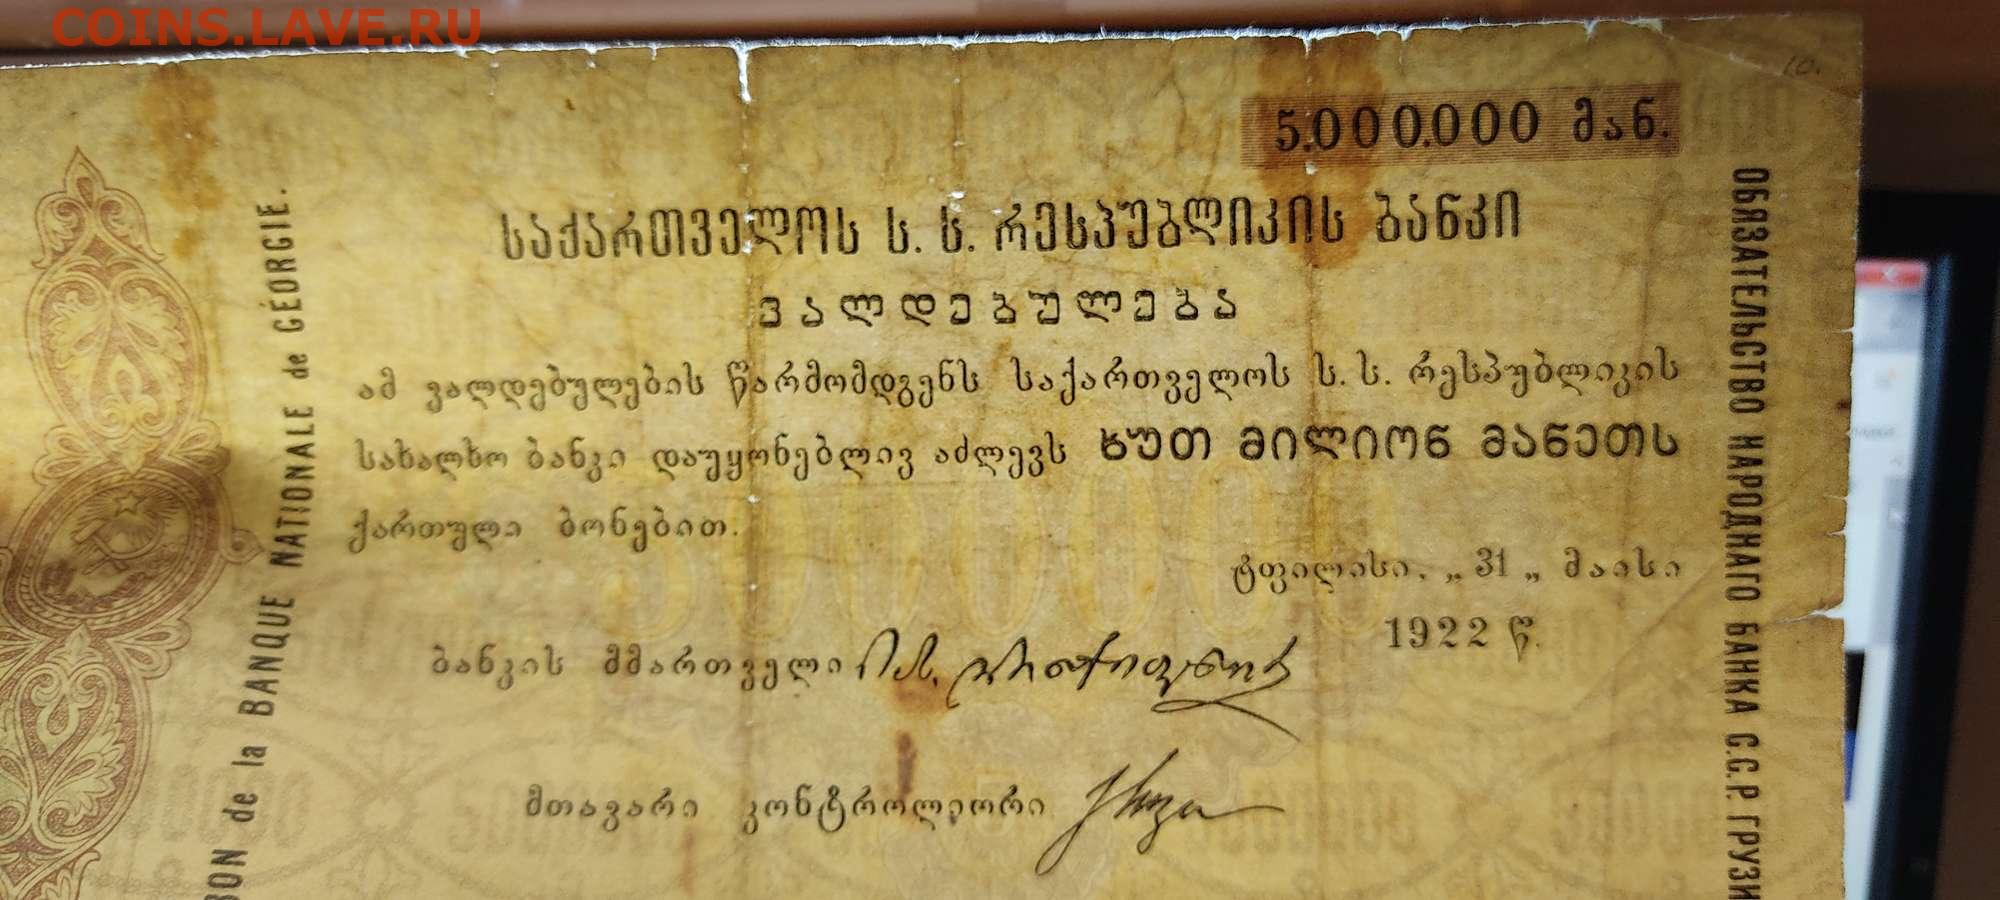 COINS.LAVE.RU
10.
5.000.000 მან.
საქართველოს ს. ს. რესპუბლიკის ბანკი
ვალდებულება
ამ ვალდებულების წარმომდგენს საქართველოს ს. ს. რესპუბლიკის
სახალხო ბანკი დაუყონებლივ აძლევს ხუთ მილიონ მანეთს
ქართული ბონებით.
ტფილისი, „ 31 „ მაისი
1922 წ.
ბანკის მმართველი
მთავარი კონტროლიორი
BON de la BANQUE NATIONALE de GÉORGIE.
ОБЯЗАТЕЛЬСТВО НАРОДНАГО БАНКА С.С.Р. ГРУЗИ
5000000